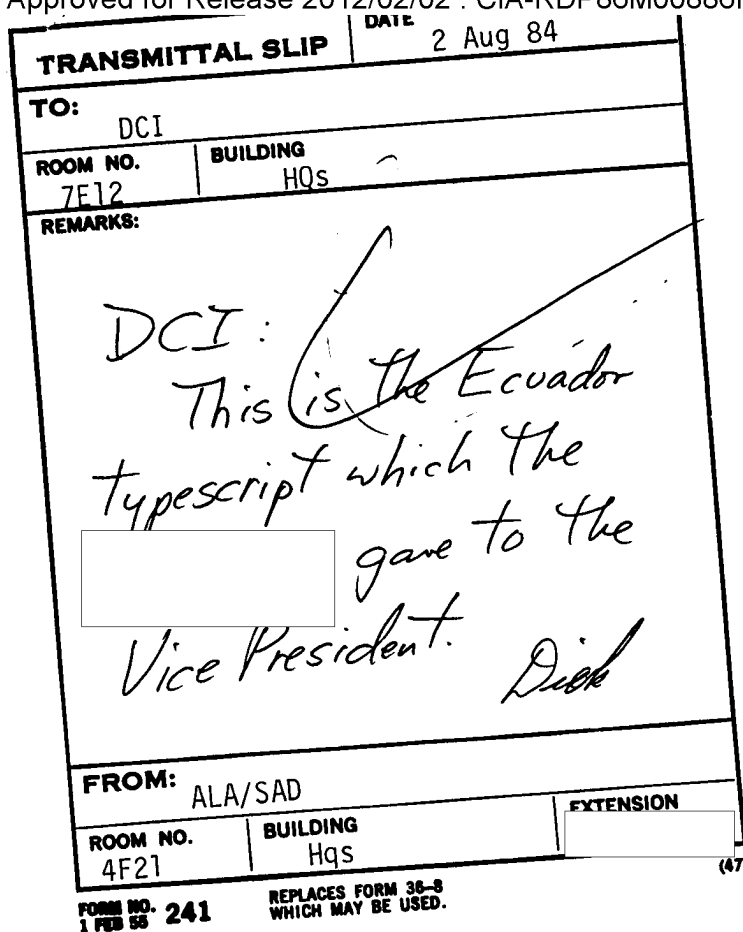 Approved for Release 2012/02/02 :
TRANSMITTAL SLIP
DATE
2 Aug 84
TO:
DCI
ROOM NO.
BUILDING
7E12
HQs
REMARKS:
DCI:
This is the Ecuador
typescript which the
gave to the
Vice President.
Dick
FROM:
ALA/SAD
ROOM NO.
BUILDING
EXTENSION
4F21
Hqs
(47
FORM NO. 241
1 FEB 55
REPLACES FORM 36-8
WHICH MAY BE USED.